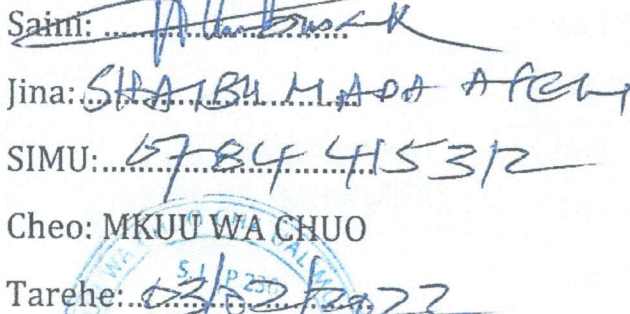 Saini:
Jina: SHAIBU MADA
SIMU: 0784 415312
Cheo: MKUU WA CHUO
S.L.P 236
Tarehe: 03/02/2022